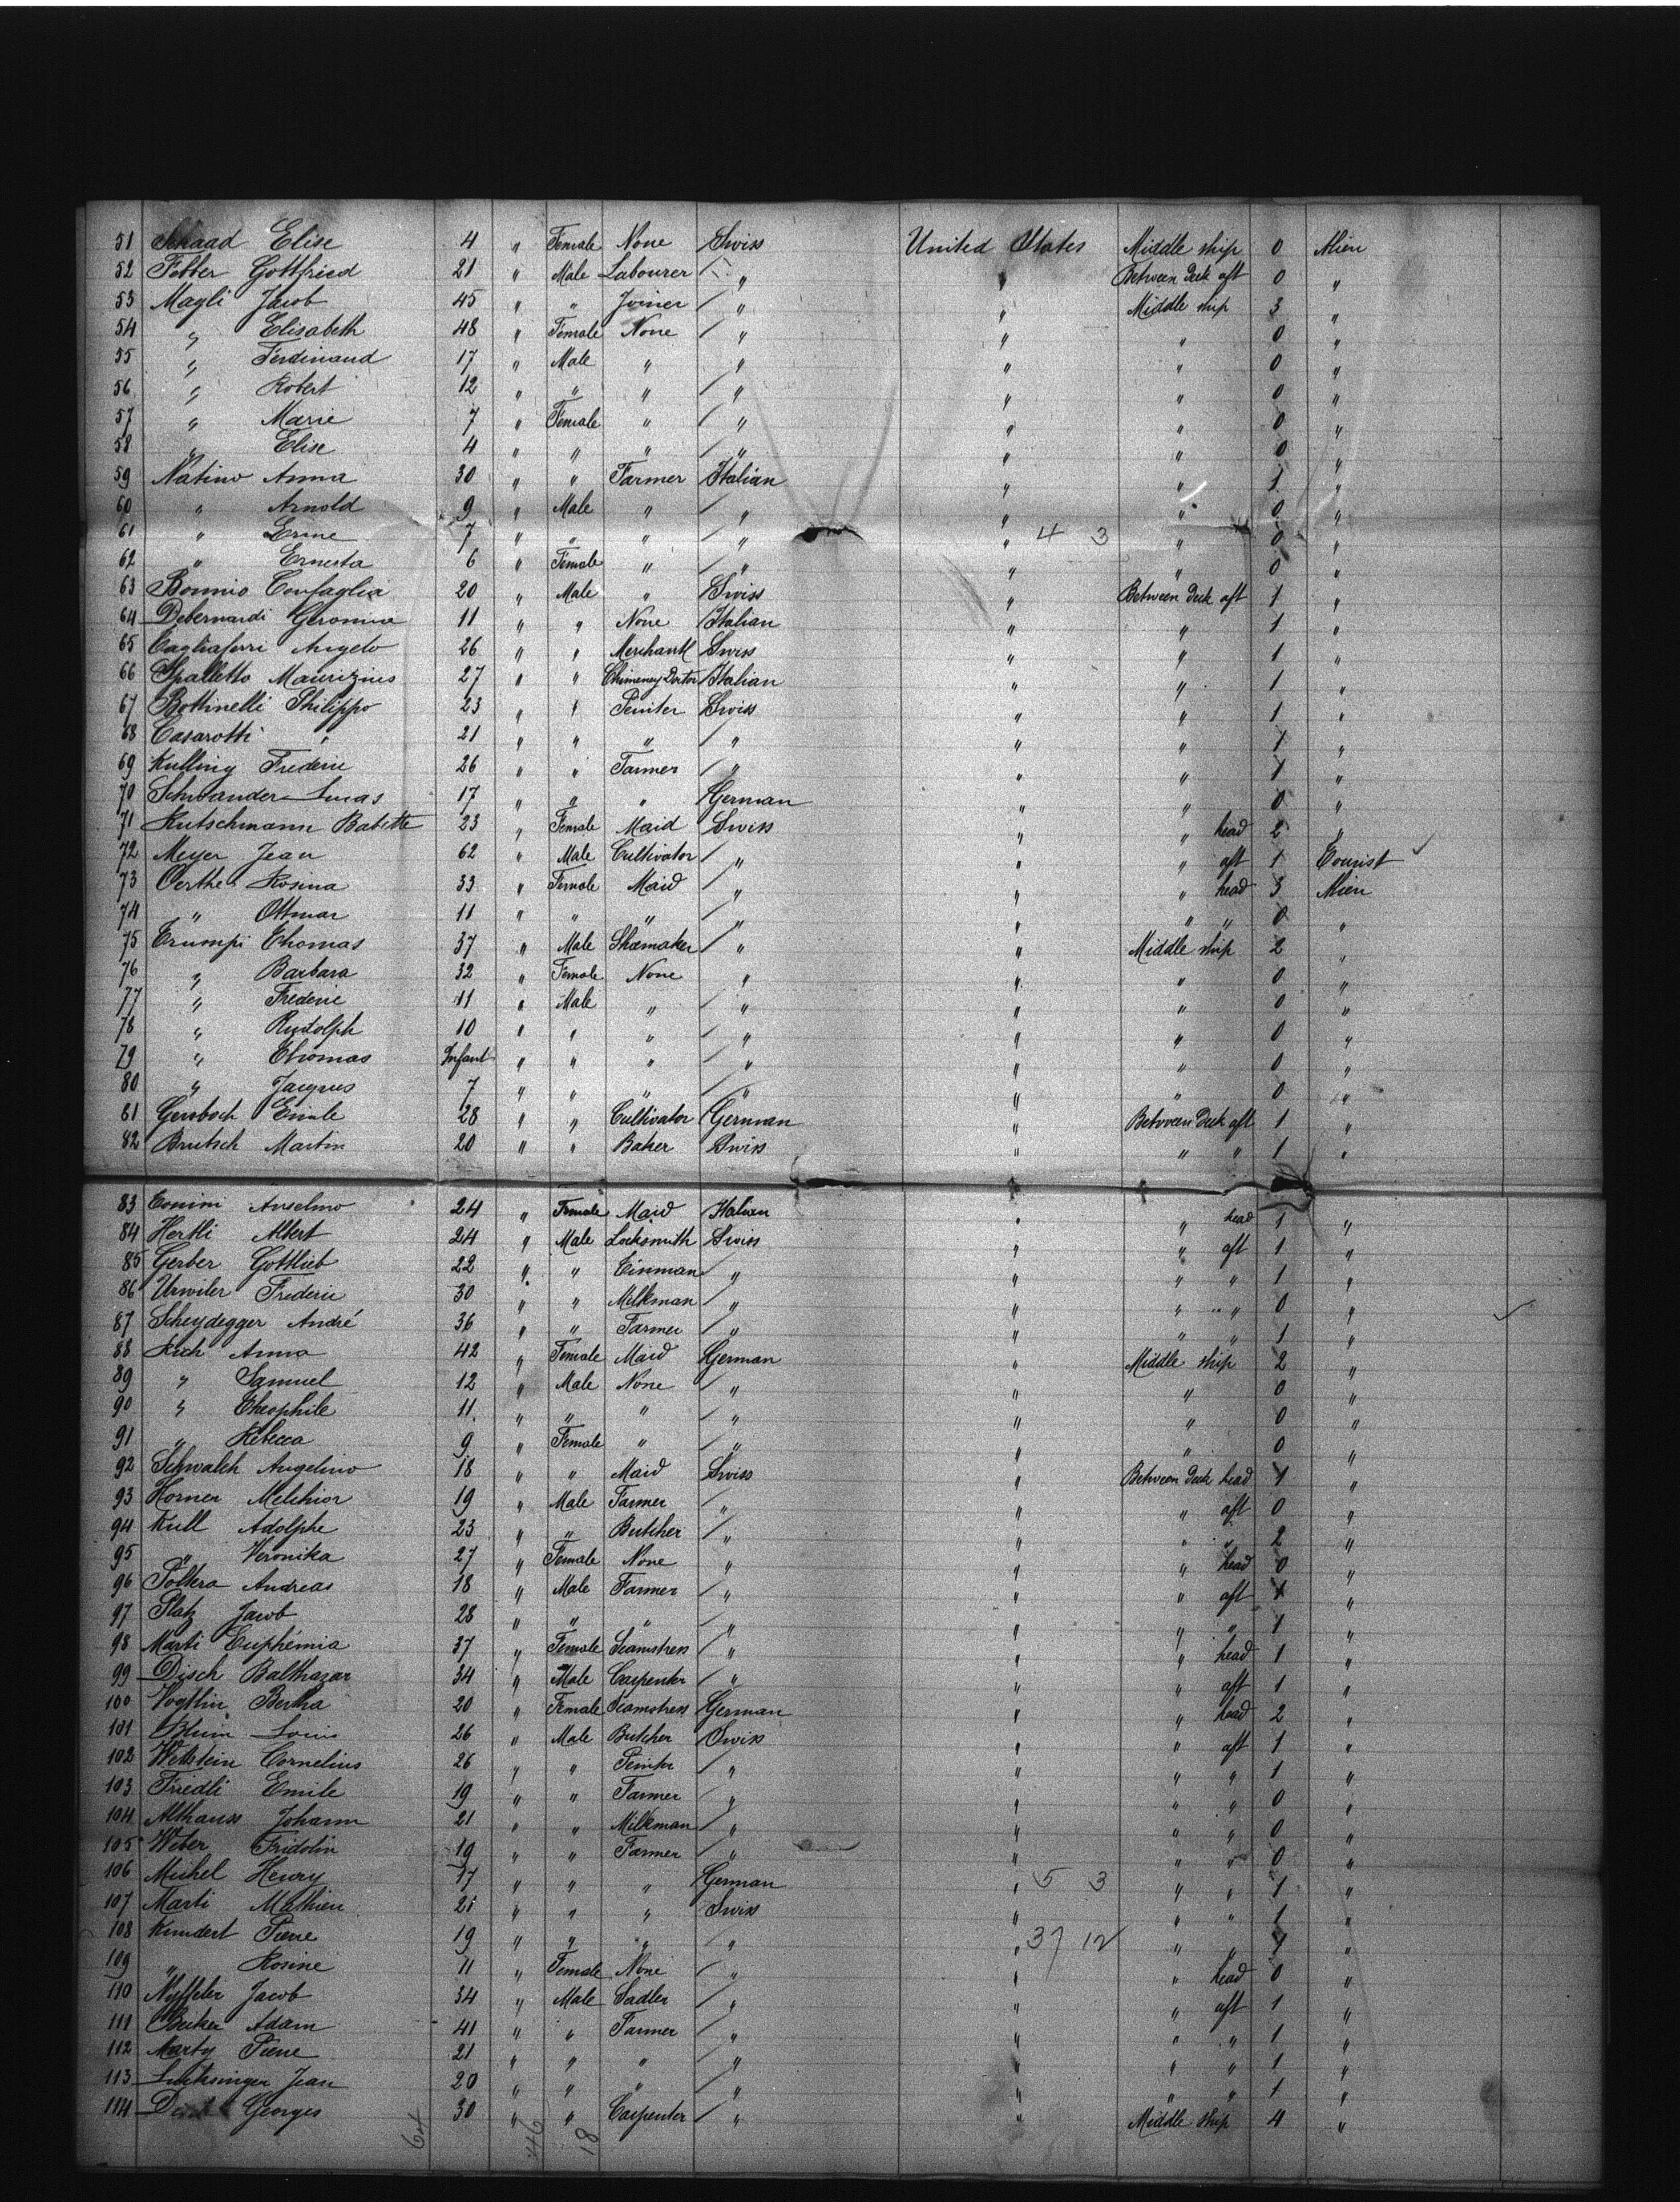 51 Schaad Elise 4 " Female None Swiss United States Middle ship 0 Alien
52 Fetter Gottfried 21 " Male Labourer " " Between deck aft 0 "
53 Magli Jacob 45 " " Joiner " " Middle ship 3 "
54 " Elisabeth 48 " Female None " " " 0 "
55 " Ferdinand 17 " Male " " " " 0 "
56 " Robert 12 " " " " " " 0 "
57 " Marie 7 " Female " " " " 0 "
58 " Elise 4 " " " " " " 0 "
59 Natino Anna 30 " " Farmer Italian " " 1 "
60 " Arnold 9 " Male " " " " 0 "
61 " Erine 7 " " " " " 4 3 " 0 "
62 " Ernesta 6 " Female " " " " 0 "
63 Bonnio Confaglia 20 " Male " Swiss " Between deck aft 1 "
64 Debernardi Geromia 11 " " None Italian " " 1 "
65 Tagliaferri Angelo 26 " " Merchant Swiss " " 1 "
66 Spalletto Maurizius 27 " " Chimeney Doctor Italian " " 1 "
67 Bottinelli Philippo 23 " " Peinter Swiss " " 1 "
68 Casarotti " 21 " " " " " " 1 "
69 Kulling Frederic 26 " " Farmer " " " 1 "
70 Schwander Lucas 17 " " " German " " 0 "
71 Kutschmann Babette 23 " Female Maid Swiss " " head 2 "
72 Meyer Jean 62 " Male Cultivator " " " aft 1 Tourist
73 Oerthe Rosina 33 " Female Maid " " " head 3 Alien
74 " Ottmar 11 " " " " " " " 0 "
75 Trumpi Thomas 37 " Male Shoemaker " " Middle ship 2 "
76 " Barbara 32 " Female None " " " 0 "
77 " Frederic 11 " Male " " " " 0 "
78 " Rudolph 10 " " " " " " 0 "
79 " Thomas Infant " " " " " " 0 "
80 " Jacques 7 " " " " " " 0 "
81 Gersbach Emile 28 " " Cultivator German " Between deck aft 1 "
82 Brutsch Martin 20 " " Baker Swiss " " " 1 "
83 Conini Anselmo 24 " Female Maid Italian " " head 1 "
84 Hertli Albert 24 " Male Locksmith Swiss " " aft 1 "
85 Gerber Gottlieb 22 " " Tinman " " " " 1 "
86 Urwiler Frederic 30 " " Milkman " " " " 0 "
87 Scheydegger André 36 " " Farmer " " " " 1 "
88 Kech Anna 42 " Female Maid German " Middle ship 2 "
89 " Samuel 12 " Male None " " " 0 "
90 " Theophile 11 " " " " " " 0 "
91 " Rebecca 9 " Female " " " " 0 "
92 Schwalch Angelino 18 " " Maid Swiss " Between deck head 1 "
93 Horner Melchior 19 " Male Farmer " " " aft 0 "
94 Kull Adolphe 23 " " Butcher " " " " 2 "
95 " Veronika 27 " Female None " " " head 0 "
96 Poltera Andreas 18 " Male Farmer " " " aft 1 "
97 Platz Jacob 28 " " " " " " " 1 "
98 Marti Euphémia 37 " Female Seamstress " " " head 1 "
99 Disch Balthazar 34 " Male Carpenter " " " aft 1 "
100 Vogtlin Bertha 20 " Female Seamstress German " " head 2 "
101 Blum Louis 26 " Male Butcher Swiss " " aft 1 "
102 Wettstein Cornelius 26 " " Peinter " " " " 1 "
103 Friedli Emile 19 " " Farmer " " " " 0 "
104 Althauss Johann 21 " " Milkman " " " " 0 "
105 Weber Fridolin 19 " " Farmer " " " " 0 "
106 Michel Henry 17 " " " German " 5 3 " " 1 "
107 Marti Mathieu 21 " " " Swiss " " " 1 "
108 Kundert Pierre 19 " " " " " 37 12 " " 1 "
109 " Rosine 11 " Female None " " " head 0 "
110 Nyffeler Jacob 34 " Male Sadler " " " aft 1 "
111 Becker Adam 41 " " Farmer " " " " 1 "
112 Marty Pierre 21 " " " " " " " 1 "
113 Luchsinger Jean 20 " " " " " " " 1 "
114 Georges 30 " " Carpenter " " Middle ship 4 "
64 46 18